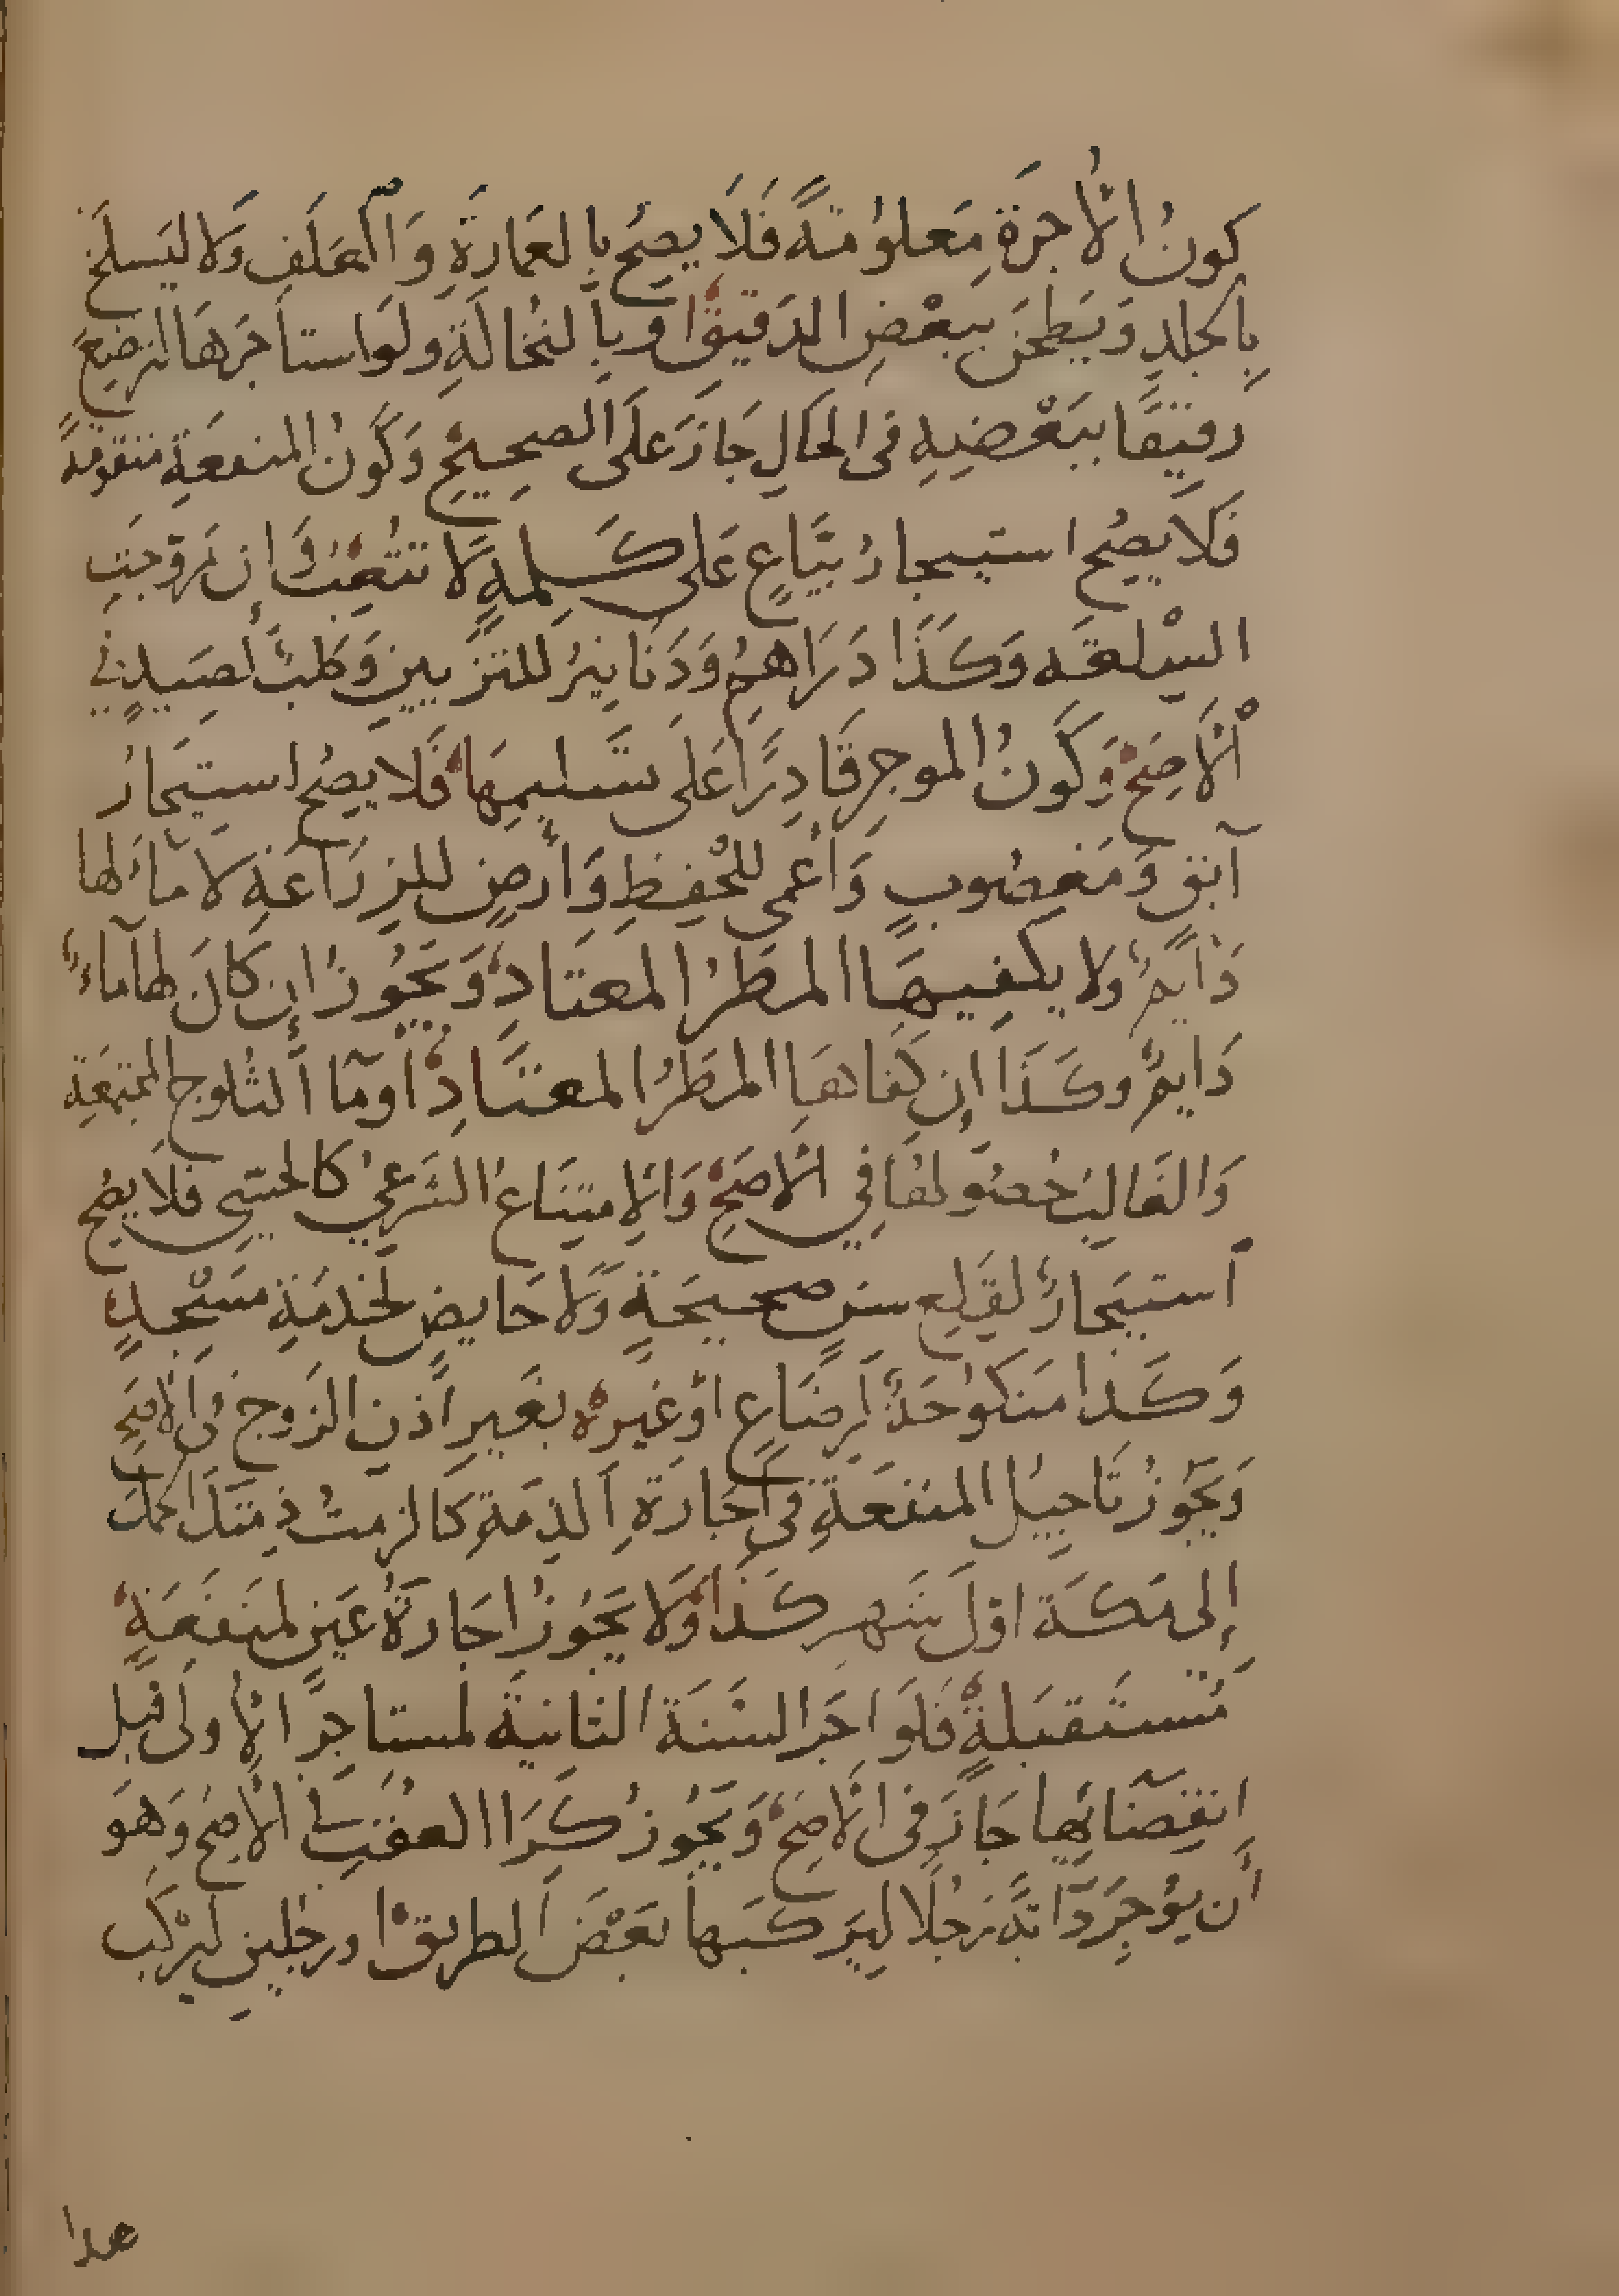 كونُ الأجرةَ مَعلوُمَةً فَلَا يصِحُ بِالعَمارَةِ وَالعَلَفِ وَلا ليَسلَخَ
بِالجلدِ وَيَطحَنَ ببَعْضِ الدَقيقِ اوبِالنُخالَةِ ولَواستاجَرهَا لترضِعَ
رقيقًا ببَعْضِهِ في الحَالِ جَازَ عَلَى الصحِيحِ وَكَونُ المنفعَةِ متقومةً
فَلَا يصِحُ استيجارُ بَيَّاعٍ عَلى كَلِمةٍ لَا تتُعِبُ وَإن رَوّجَتِ
السِّلعَه وَكَذَا دَرَاهِمُ وَدَنانِيرُ للتزَيينِ وَكلبٌ لصَيدٍ في
الْأصَحِّ وَكَونُ الموجِرِ قَادِرًا عَلَى تَسليمِهَا فَلا يصِحُ استيجَارُ
آبقٍ وَمَغصُوبٍ وَأعمَى للحِفظِ وَأرضٍ للزِرَاعَةِ لا مَآءَ لها
دَايمٌ ولا يكفِيهَا المطَرُ المعتَادُ وَيَجُوزُ إن كَانَ لها مآءٌ
دَايمٌ وكَذَا إن كفَاهَا المطَرُ المعتَادُ أومَآ الثلوج المجتمعَةِ
وَالغَالِبُ حُصُولهُا فِي الأصَحِّ وَالامتِنَاعُ الشَرعيُ كالحِسّيِ فلا يصِحُ
استيجَارٌ لقَلعِ سِنٍ صحيحَةٍ وَلا حَايضٍ لخِدمَةِ مَسْجِدٍ
وَكَذا مَنكوُحَةٌ لِرضَاعٍ اوْغَيرِهِ بغَيرِ اذنِ الزَوج في الأصَحِّ
وَيَجُوزُ تَاجِيلُ المنفعَةِ في اجَارَةِ الذِمَةِ كَالزمتُ ذِمتَكَ الحملَ
إلى مَكَة اوّلَ شَهرِ كَذَا وَلَا يَجُوزُ اجَارَةُ عَينٍ لمنفَعَةٍ
مُستَقبَلةٍ فَلَو اجَرَ السَنَة الثانيَةَ لمستاجِرِ الأولَى قبل
انقِضَائِها جَازَ في الأصَحِّ وَيَجُوزُ كِرَا العُقَبِ في الأصَحِّ وَهوَ
أن يؤجِرَ دَابَّةً رَجُلًا لِيَركَبَها بَعْضَ الطريقِ اورجلينِ ليَرْكَبَ
هذا